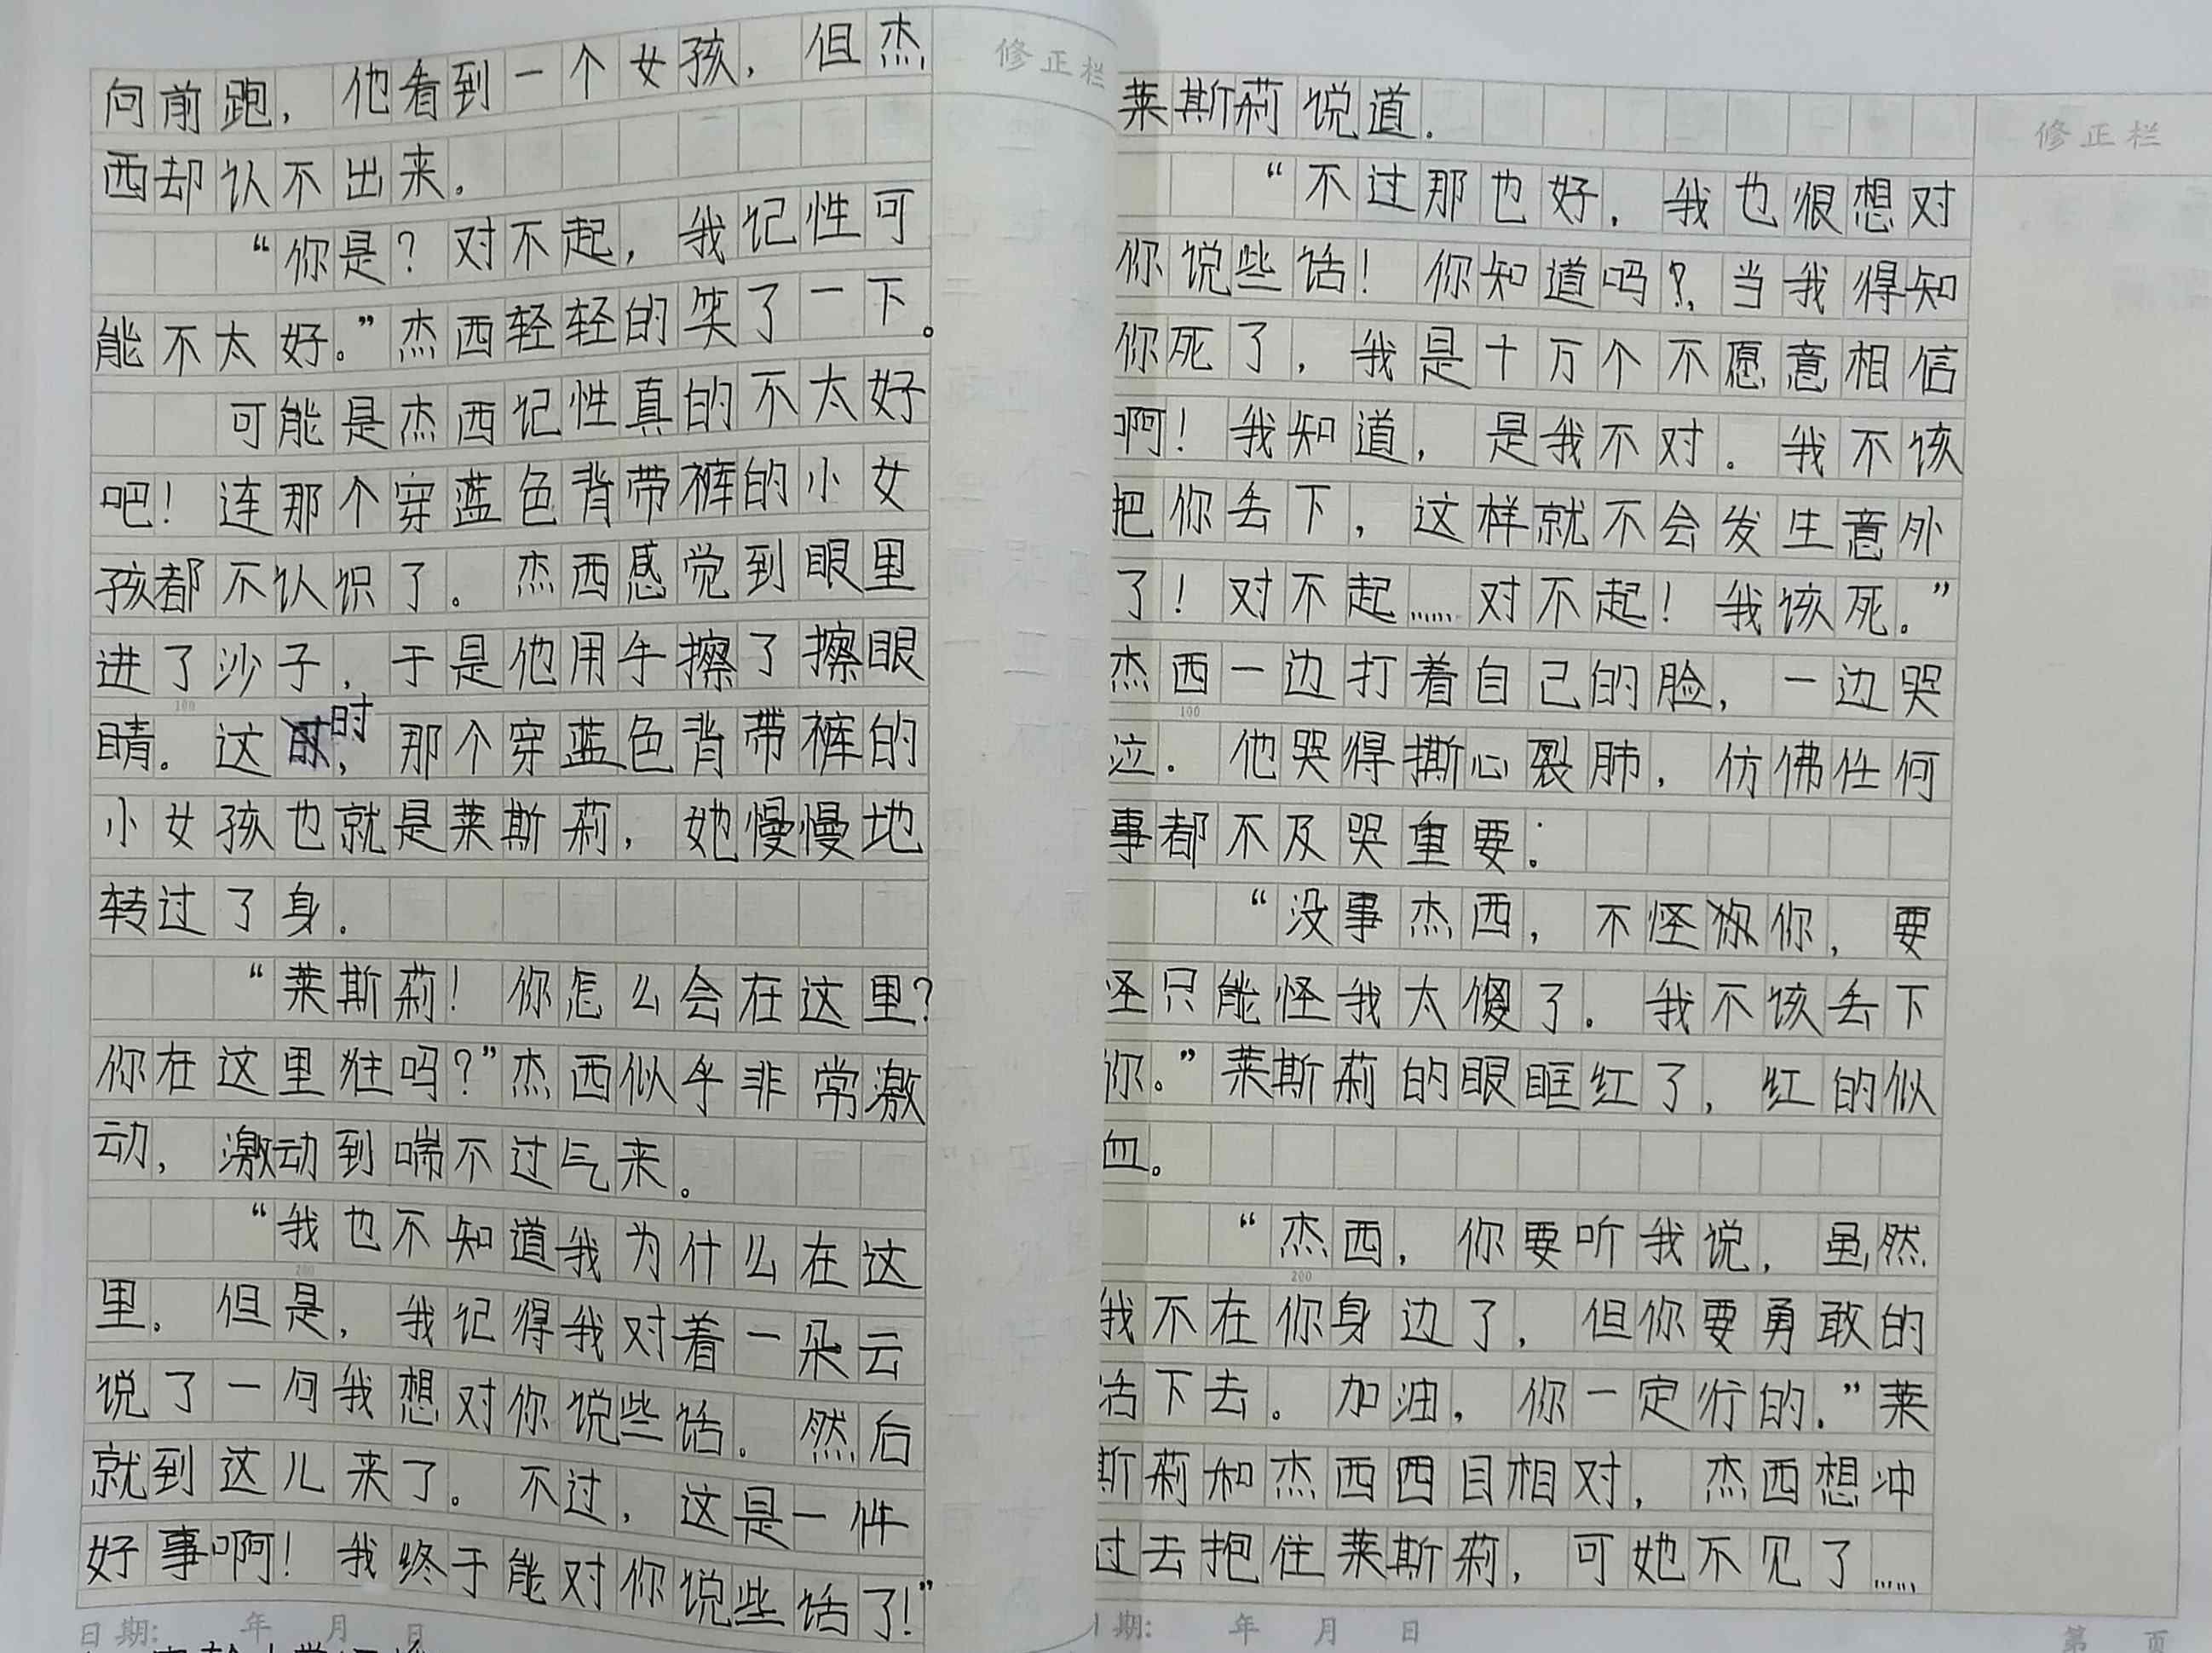 向前跑，他看到一个女孩，但杰
西却认不出来。
“你是？对不起，我记性可
能不太好。”杰西轻轻的笑了一下。
可能是杰西记性真的不太好
吧！连那个穿蓝色背带裤的小女
孩都不认识了。杰西感觉到眼里
进了沙子，于是他用手擦了擦眼
睛。这时，那个穿蓝色背带裤的
小女孩也就是莱斯莉，她慢慢地
转过了身.
“莱斯莉！你怎么会在这里？
你在这里住吗？”杰西似乎非常激
动，激动到喘不过气来。
“我也不知道我为什么在这
里.但是，我记得我对着一朵云
说了一句我想对你说些话。然后
就到这儿来了。不过，这是一件
好事啊！我终于能对你说些话了！”
日期： 年 月 日
修正栏
莱斯莉说道.
“不过那也好，我也很想对
你说些话！你知道吗？当我得知
你死了，我是十万个不愿意相信
啊！我知道，是我不对。我不该
把你丢下，这样就不会发生意外
了！对不起……对不起！我该死。”
杰西一边打着自己的脸，一边哭
泣.他哭得撕心裂肺，仿佛任何
事都不及哭重要：
“没事杰西，不怪你，要
怪只能怪我太傻了.我不该丢下
你。”莱斯莉的眼眶红了，红的似
血。
“杰西，你要听我说，虽然
我不在你身边了，但你要勇敢的
活下去。加油，你一定行的.”莱
斯莉和杰西四目相对，杰西想冲
过去抱住莱斯莉，可她不见了……
修正栏
日期： 年 月 日
第 页
100
200
100
200